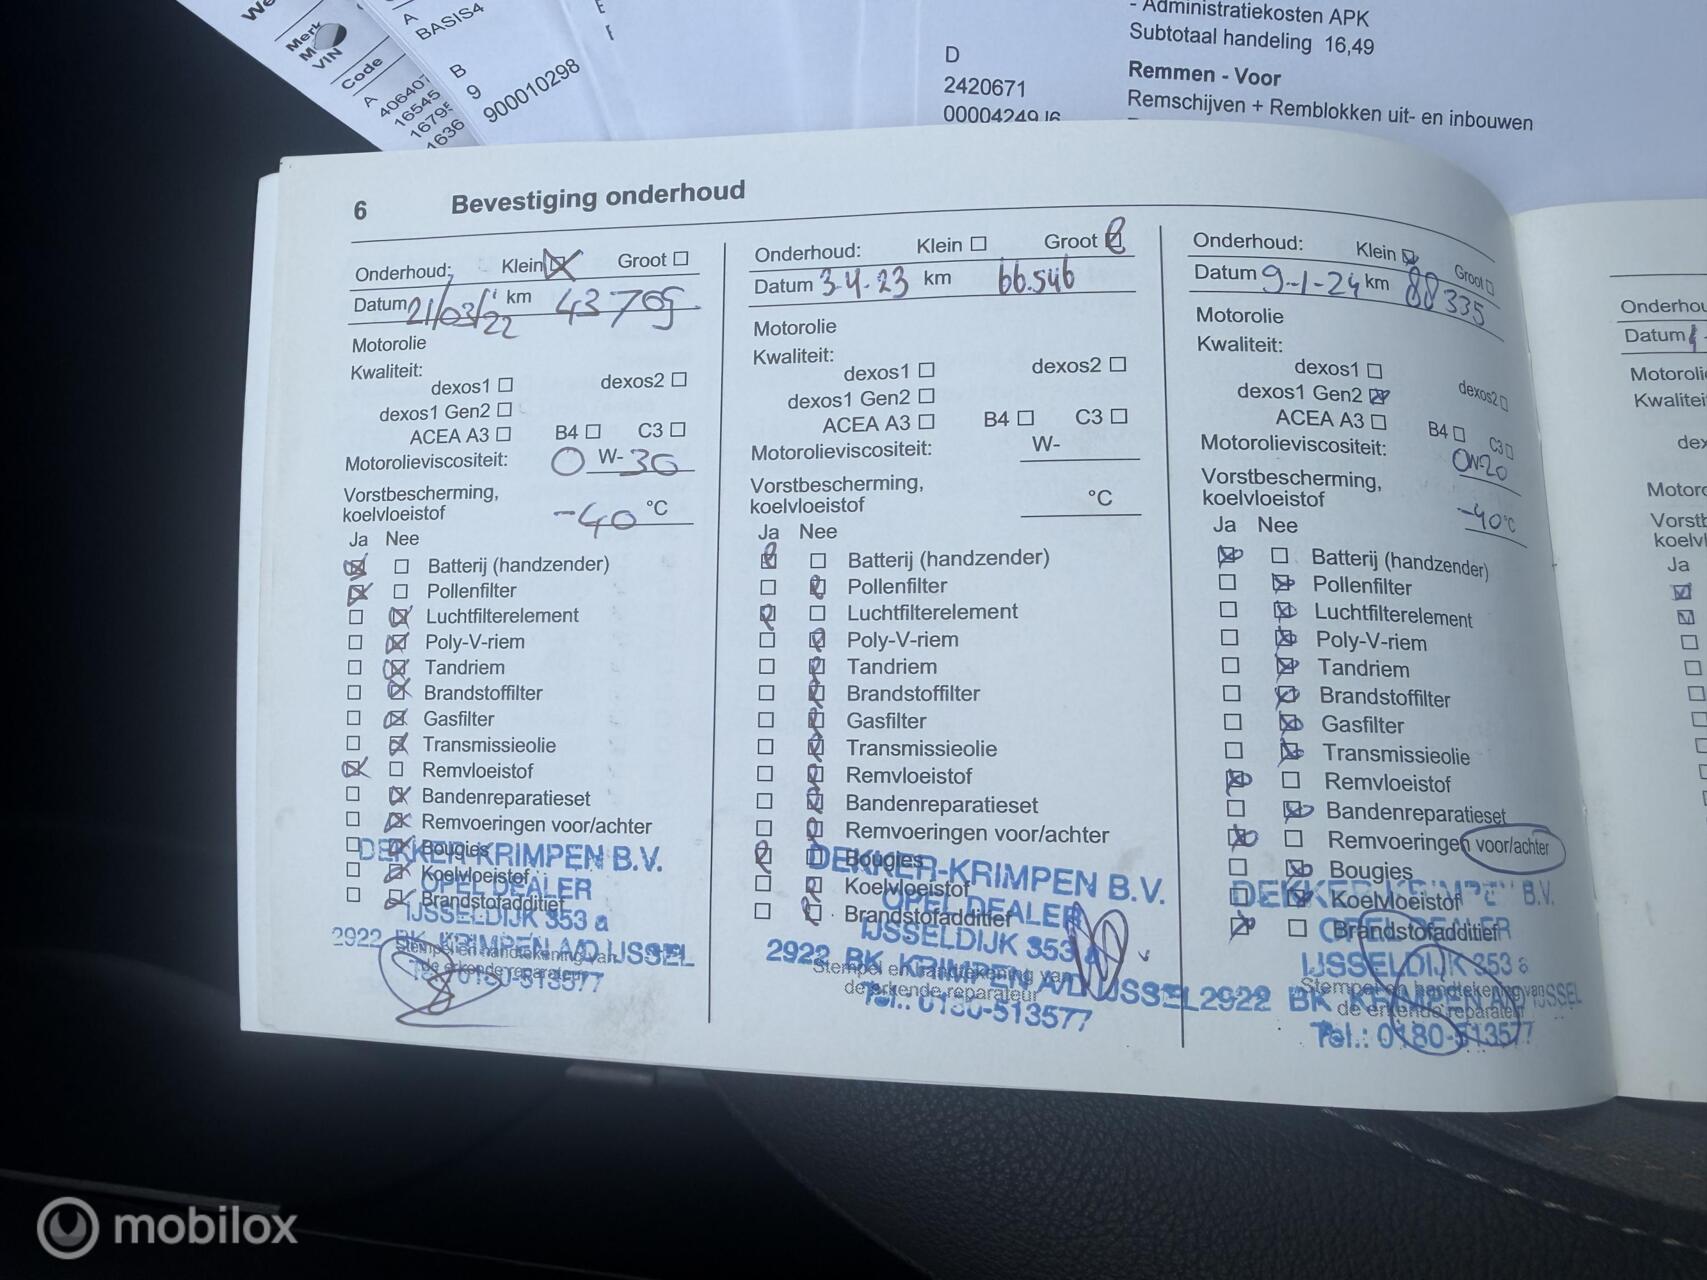 Merk
VIN
Code
A
406407
16545
1636
A
BASIS4
B
9
900010298
D
2420671
- Administratiekosten APK
Subtotaal handeling 16,49
Remmen - Voor
Remschijven + Remblokken uit- en inbouwen
6 Bevestiging onderhoud
Onderhoud: Klein Groot
Datum 21/03/22 km 43709
Motorolie
Kwaliteit:
dexos1 dexos2
dexos1 Gen2
ACEA A3 B4 C3
Motorolieviscositeit: 0 W-30
Vorstbescherming,
koelvloeistof -40 °C
Ja Nee
Batterij (handzender)
Pollenfilter
Luchtfilterelement
Poly-V-riem
Tandriem
Brandstoffilter
Gasfilter
Transmissieolie
Remvloeistof
Bandenreparatieset
Remvoeringen voor/achter
Bougies
Koelvloeistof
Brandstofadditief
Stempel en handtekening van
de erkende reparateur
DEKKER-KRIMPEN B.V.
OPEL DEALER
IJSSELDIJK 353 a
2922 BK KRIMPEN A/D IJSSEL
Tel.: 0180-513577
Onderhoud: Klein Groot
Datum 3-4-23 km 66.546
Motorolie
Kwaliteit:
dexos1 dexos2
dexos1 Gen2
ACEA A3 B4 C3
Motorolieviscositeit: W-
Vorstbescherming,
koelvloeistof °C
Ja Nee
Batterij (handzender)
Pollenfilter
Luchtfilterelement
Poly-V-riem
Tandriem
Brandstoffilter
Gasfilter
Transmissieolie
Remvloeistof
Bandenreparatieset
Remvoeringen voor/achter
Bougies
Koelvloeistof
Brandstofadditief
Stempel en handtekening van
de erkende reparateur
DEKKER-KRIMPEN B.V.
OPEL DEALER
IJSSELDIJK 353 a
2922 BK KRIMPEN A/D IJSSEL
Tel.: 0180-513577
Onderhoud: Klein Groot
Datum 9-1-24 km 88335
Motorolie
Kwaliteit:
dexos1
dexos1 Gen2 dexos2
ACEA A3 B4 C3
Motorolieviscositeit: 0W-20
Vorstbescherming,
koelvloeistof -40°C
Ja Nee
Batterij (handzender)
Pollenfilter
Luchtfilterelement
Poly-V-riem
Tandriem
Brandstoffilter
Gasfilter
Transmissieolie
Remvloeistof
Bandenreparatieset
Remvoeringen voor/achter
Bougies
Koelvloeistof
Brandstofadditief
Stempel en handtekening van
de erkende reparateur
DEKKER-KRIMPEN B.V.
OPEL DEALER
IJSSELDIJK 353 a
2922 BK KRIMPEN A/D IJSSEL
Tel.: 0180-513577
Onderhou
Datum
Motorolie
Kwaliteit
dex
Motoro
Vorstb
koelvl
Ja
mobilox